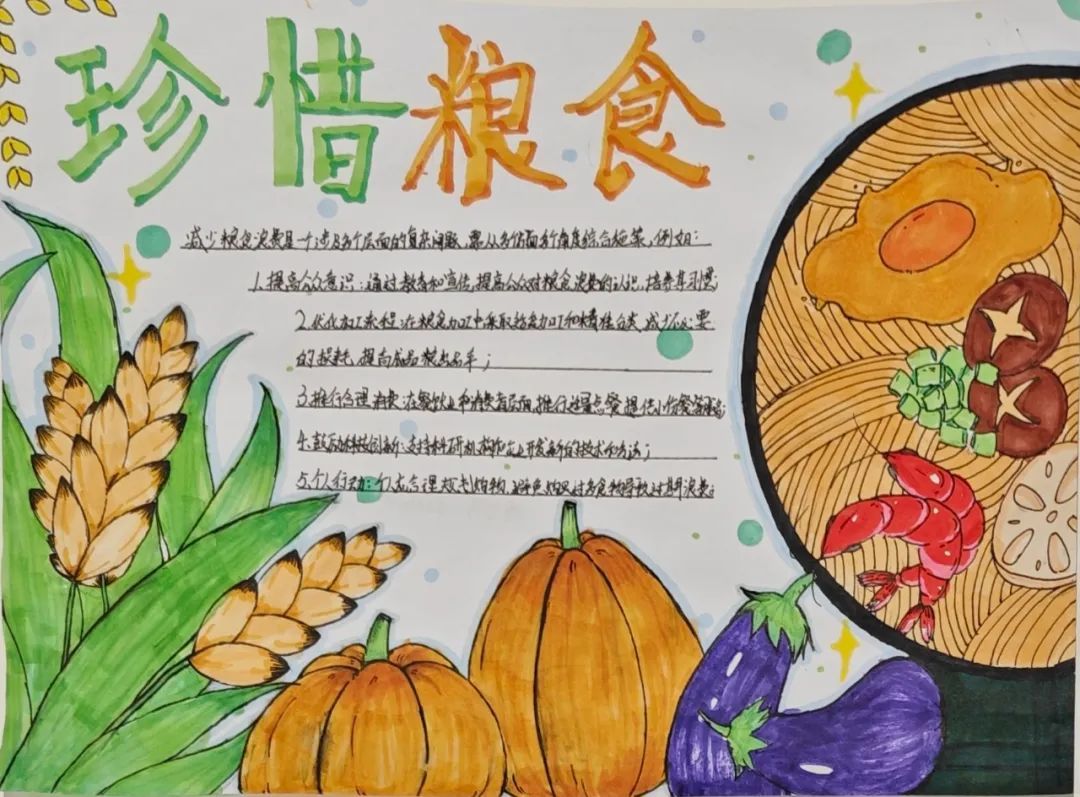 珍惜粮食
减少粮食浪费是一个涉及多个层面的复杂问题,要从多方面多个角度综合施策,例如:
1.提高公众意识:通过教育和宣传,提高公众对粮食浪费的认识,培养其习惯;
2.优化加工流程:在粮食加工中采取适度加工和精准分类,减少不必要
的损耗,提高成品粮出品率;
3.推行合理消费:在餐饮业和消费者层面,推行适量点餐,提供小份餐等
4.鼓励科技创新:支持科研机构和企业开发新的技术和方法;
5.个人行动:个人应合理规划购物,避免购买过多食物导致过期浪费。